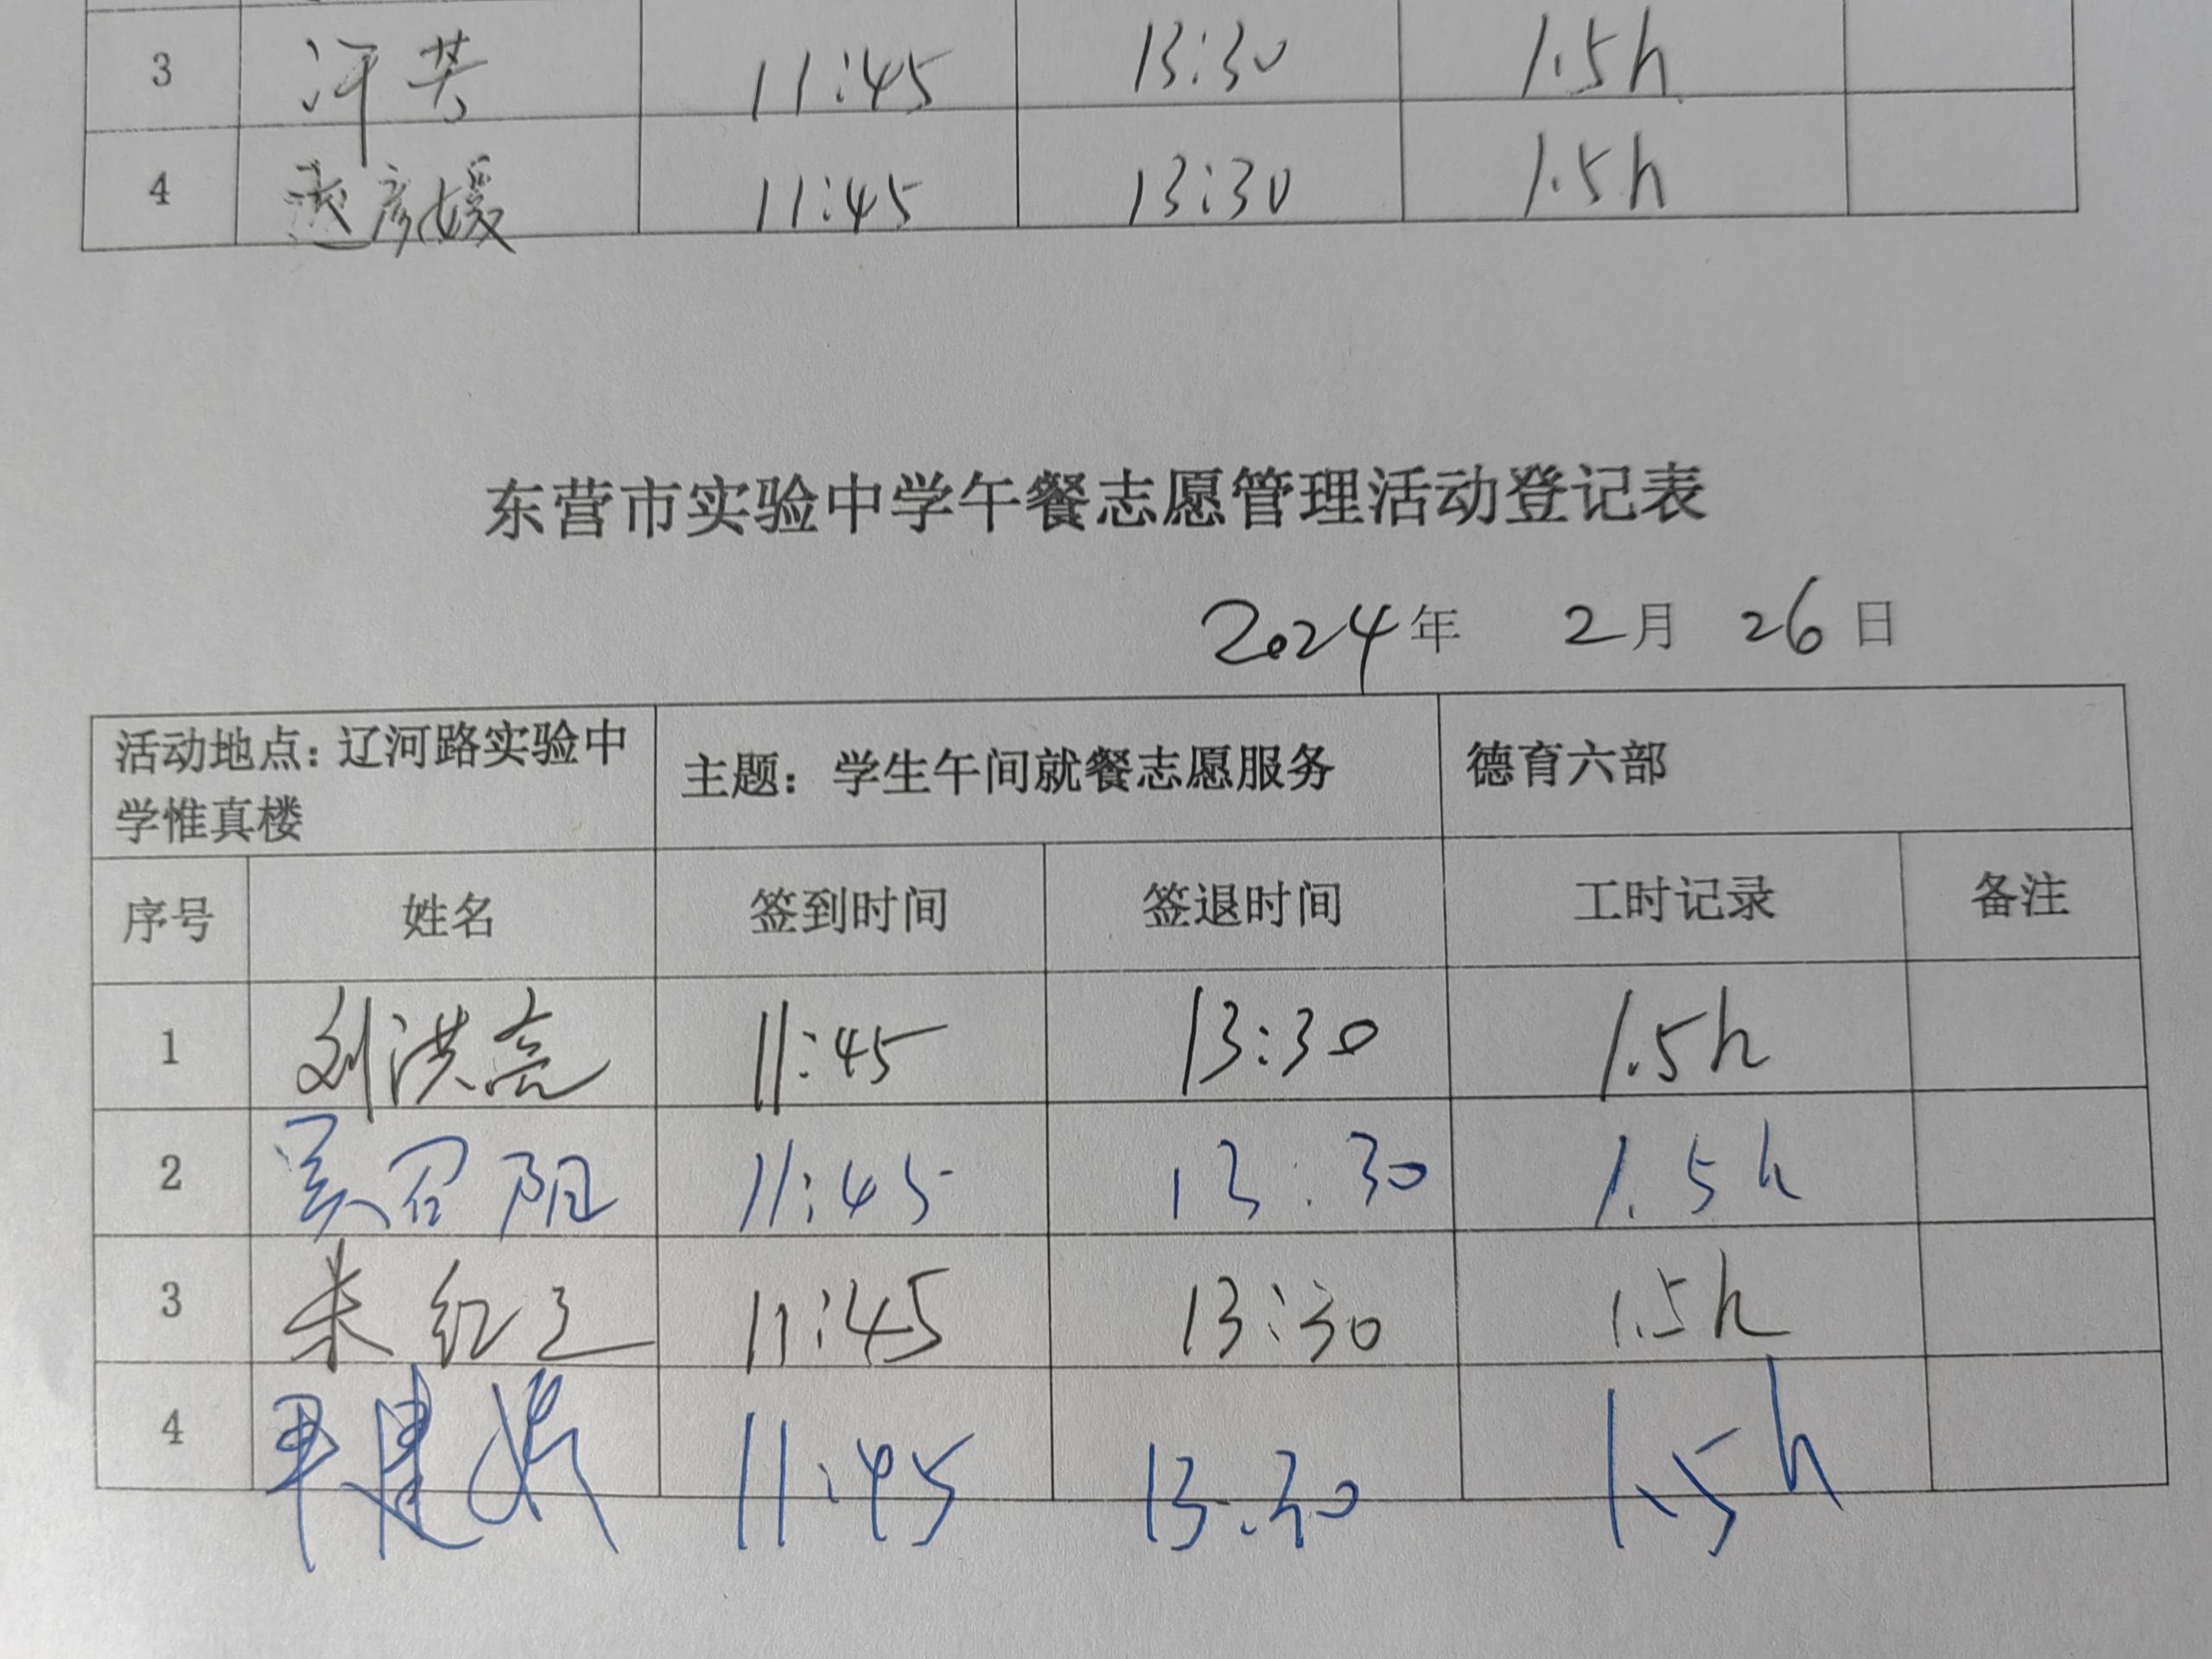 3 11:45 13:30 1.5h
4 赵彦媛 11:45 13:30 1.5h
东营市实验中学午餐志愿管理活动登记表
2024年 2月 26日
活动地点：辽河路实验中学惟真楼 主题：学生午间就餐志愿服务 德育六部
序号 姓名 签到时间 签退时间 工时记录 备注
1 刘洪亮 11:45 13:30 1.5h
2 吴召阳 11:45 13:30 1.5h
3 朱红卫 11:45 13:30 1.5h
4 11:45 13:30 1.5h